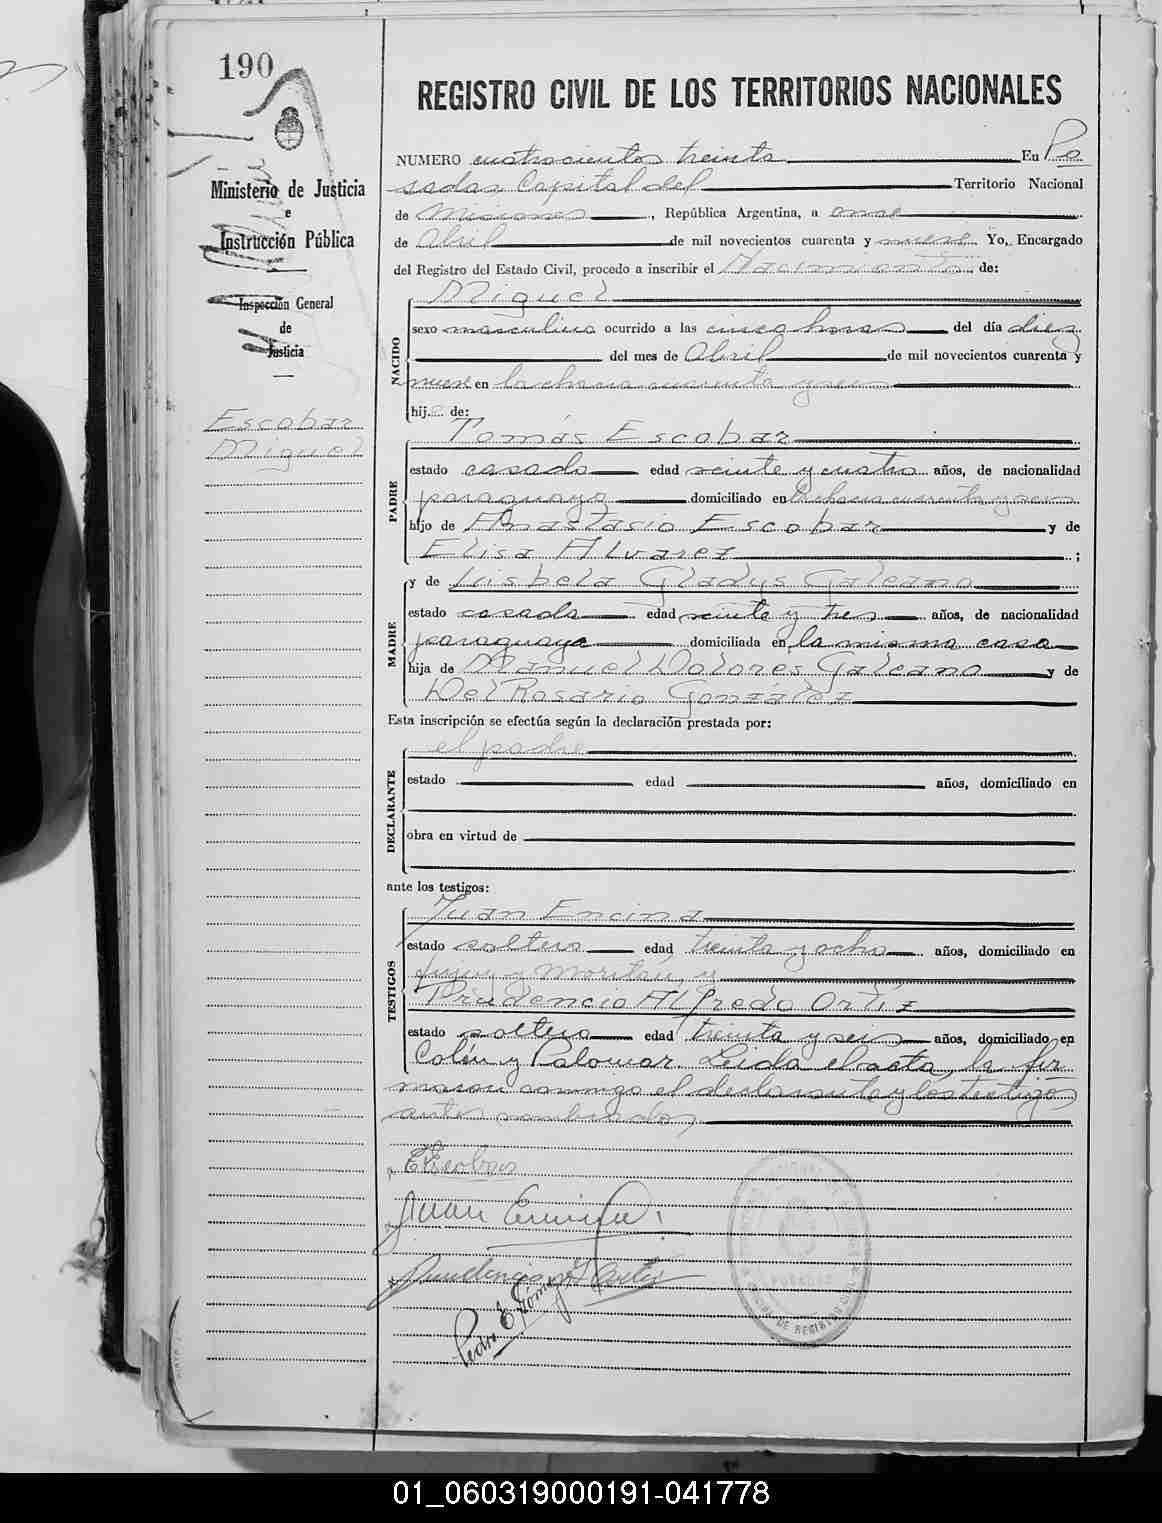 190
REGISTRO CIVIL DE LOS TERRITORIOS NACIONALES
Ministerio de Justicia
e
Instrucción Pública
Inspección General
de
Justicia
Escobar
Miguel
NUMERO cuatrocientos treinta En Po
sadas Capital del Territorio Nacional
de Misiones, República Argentina, a once
de Abril de mil novecientos cuarenta y nueve Yo, Encargado
del Registro del Estado Civil, procedo a inscribir el Nacimiento de:
NACIDO
Miguel
sexo masculino ocurrido a las cinco horas del día diez
del mes de Abril de mil novecientos cuarenta y
nueve en la chacra cuarenta y seis
hijo de:
PADRE
Tomás Escobar
estado casado edad veinte y cuatro años, de nacionalidad
paraguaya domiciliado en la chacra cuarenta y seis
hijo de Anastasio Escobar y de
Elisa Alvarez;
MADRE
y de Lisbela Gladys Galeano
estado casada edad veinte y tres años, de nacionalidad
paraguaya domiciliada en la misma casa
hija de Manuel Dolores Galeano y de
Del Rosario González
Esta inscripción se efectúa según la declaración prestada por:
DECLARANTE
el padre
estado edad años, domiciliado en
obra en virtud de
ante los testigos:
TESTIGOS
Juan Encina
estado soltero edad treinta y ocho años, domiciliado en
Jujuy y Moritán, y
Prudencio Alfredo Ortíz
estado soltero edad treinta y seis años, domiciliado en
Colón y Palomar. Leida el acta, la fir
maron conmigo el declarante y los testigos
antes nombrados,
TEscobar
Juan Encina
Prudencio A Ortiz
Pedro E. Gómez
POSADAS
01_060319000191-041778